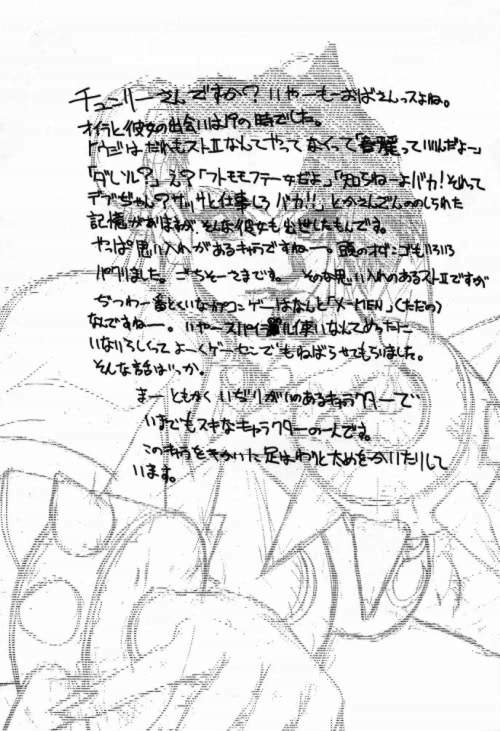 チュンリーさんですか？いやーもーおばさんっスよね。
オイラと彼女の出会いは19の時でした。
トウジはだれもストⅡなんてやってなくって「春麗っていいんだよー」
「ダレソレ？」え？「フトモモフテー女だよ」「知らねーよバカ！それって
デブぢゃん？サッサと仕事しろバカ！！」とかさんざんののしられた
記憶がありますが、そんな彼女も出世したもんです。
やっぱ思い入れがあるキャラですねー。頭のオダンゴもいろいろ
パクリました。ごちそーさまです。その思い入れのあるストⅡですが
ぢつわー番とくいなカプコンゲーはなんと「X-MEN」(ただの)
なんですねー。いやースパイラル使いなんてめったに
いないらしくってよーくゲーセンでもねばらせてもらいました。
そんな話はいっか。
まーともかくいぢりがいのあるキャラクターで
いまでもスキなキャラクターの一人です。
このキャラをキッカケに足はわりと太めをかいたりして
います。